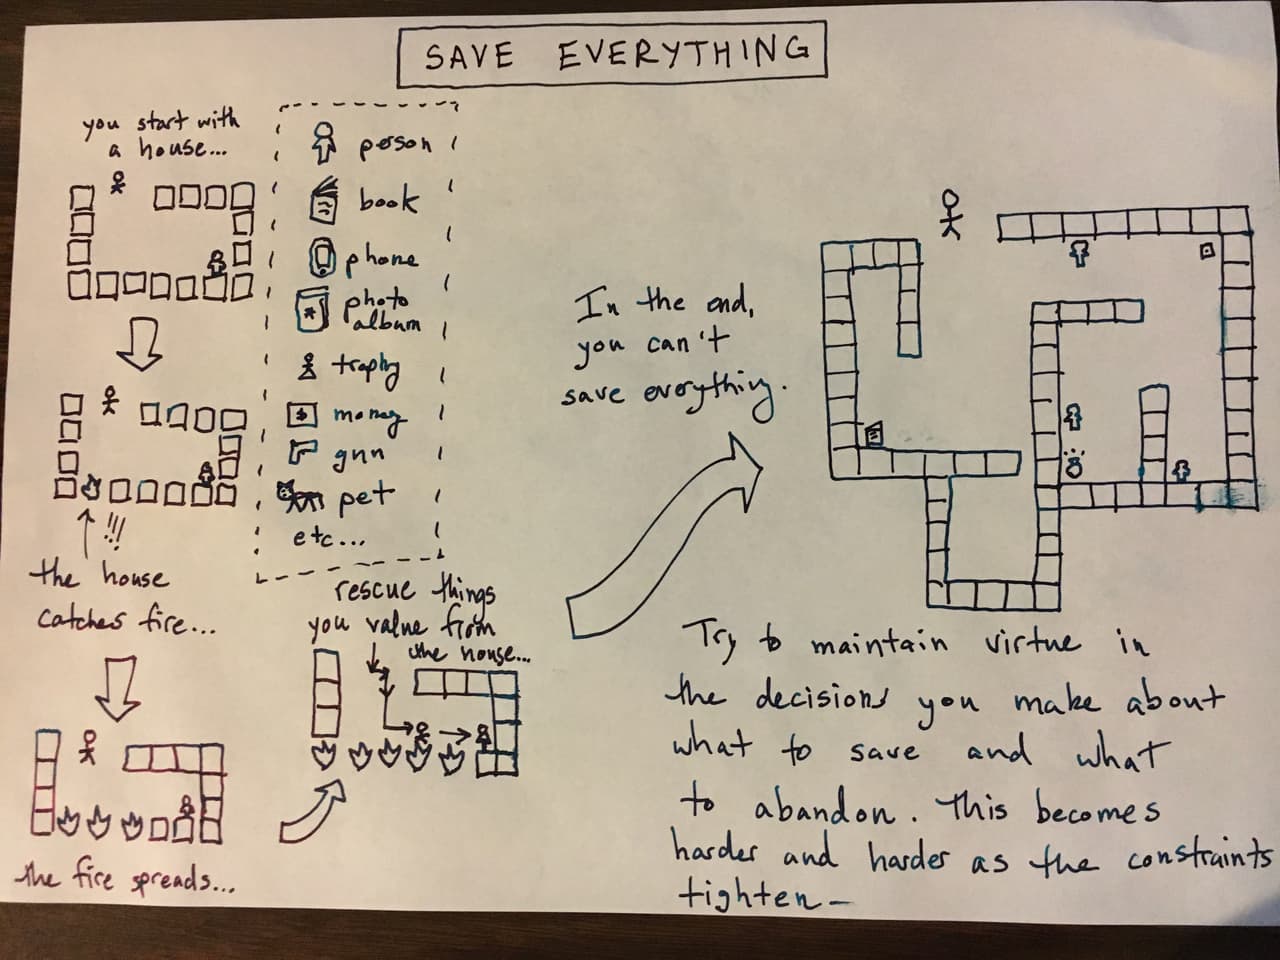 SAVE EVERYTHING
you start with
a house...
person
book
phone
photo
album
trophy
money
gun
pet
etc...
!!!
the house
catches fire...
the fire spreads...
rescue things
you value from
the house...
In the end,
you can't
save everything.
Try to maintain virtue in
the decisions you make about
what to save and what
to abandon. This becomes
harder and harder as the constraints
tighten-